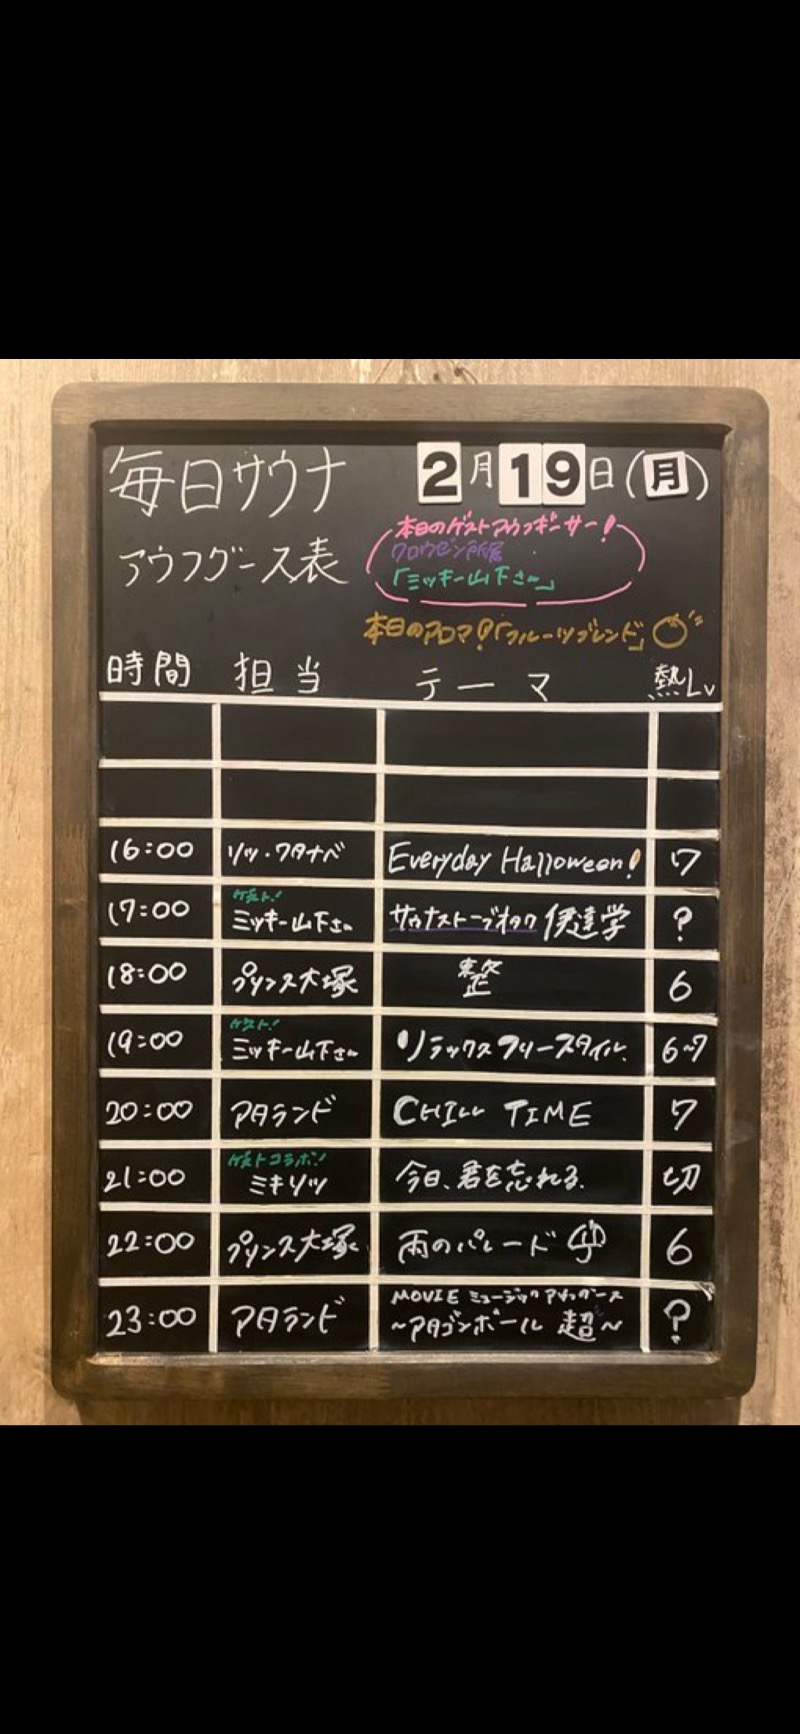 毎日サウナ
2月19日(月)
アウフグース表
本日のゲストアウフギーサー!
クロウゼン所属
「ミッキー山下さん」
本日のアロマ!「フルーツブレンド」
時間 担当 テーマ 熱Lv
16:00 リッ・ワタナベ Everyday Halloween! 7
ゲスト!
17:00 ミッキー山下さん サウナストーブオタク 伊達学 ?
18:00 プリンス大塚 整 6
ゲスト!
19:00 ミッキー山下さん リラックスフリースタイル. 6~7
20:00 アタランド CHILL TIME 7
ゲストコラボ!
21:00 ミキリッツ 今日、君を忘れる. 切
22:00 プリンス大塚 雨のパレード 6
MOVIE ミュージックアウフグース
23:00 アタランド ~アタゴンボール 超~ ?